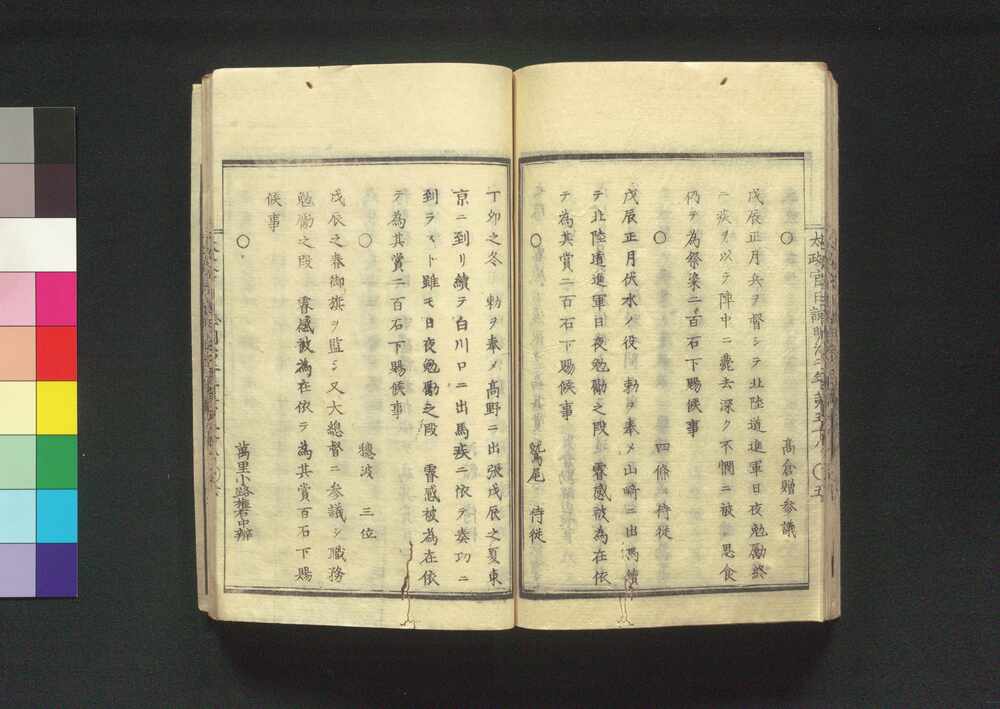 〇
高倉贈参議
戊辰正月兵ヲ督シテ北陸道進軍日夜勉勵終
ニ疾ヲ以テ陣中ニ薨去深ク不憫ニ被 思食
仍テ為祭粢二百石下賜候事
〇
四條 侍従
戊辰正月伏水ノ役 勅ヲ奉メ山崎ニ出馬續
テ北陸道進軍日夜勉勵之段 睿感被為在依
テ為其賞二百石下賜候事
〇
鷲尾 侍従
丁卯之冬 勅ヲ奉メ高野ニ出張戊辰之夏東
京ニ到リ續テ白川口ニ出馬疾ニ依テ奏功ニ
到ラスト雖モ日夜勉勵之段 睿感被為在依
テ為其賞二百石下賜候事
〇
穂波 三位
戊辰之春御旗ヲ監シ又大總督ニ参議シ職務
勉勵之段 睿感被為在依テ為其賞百石下賜
候事
〇
萬里小路権右中辨
太政官日誌明治二年第五十八 〇五